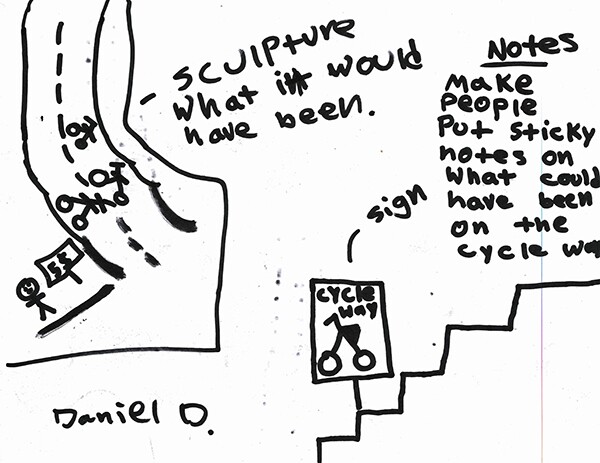 SCulpture
What it would
have been.
Notes
Make
People
Put sticky
notes on
What could
have been
on the
cycle way
sign
cycle
way
$$
Daniel D.